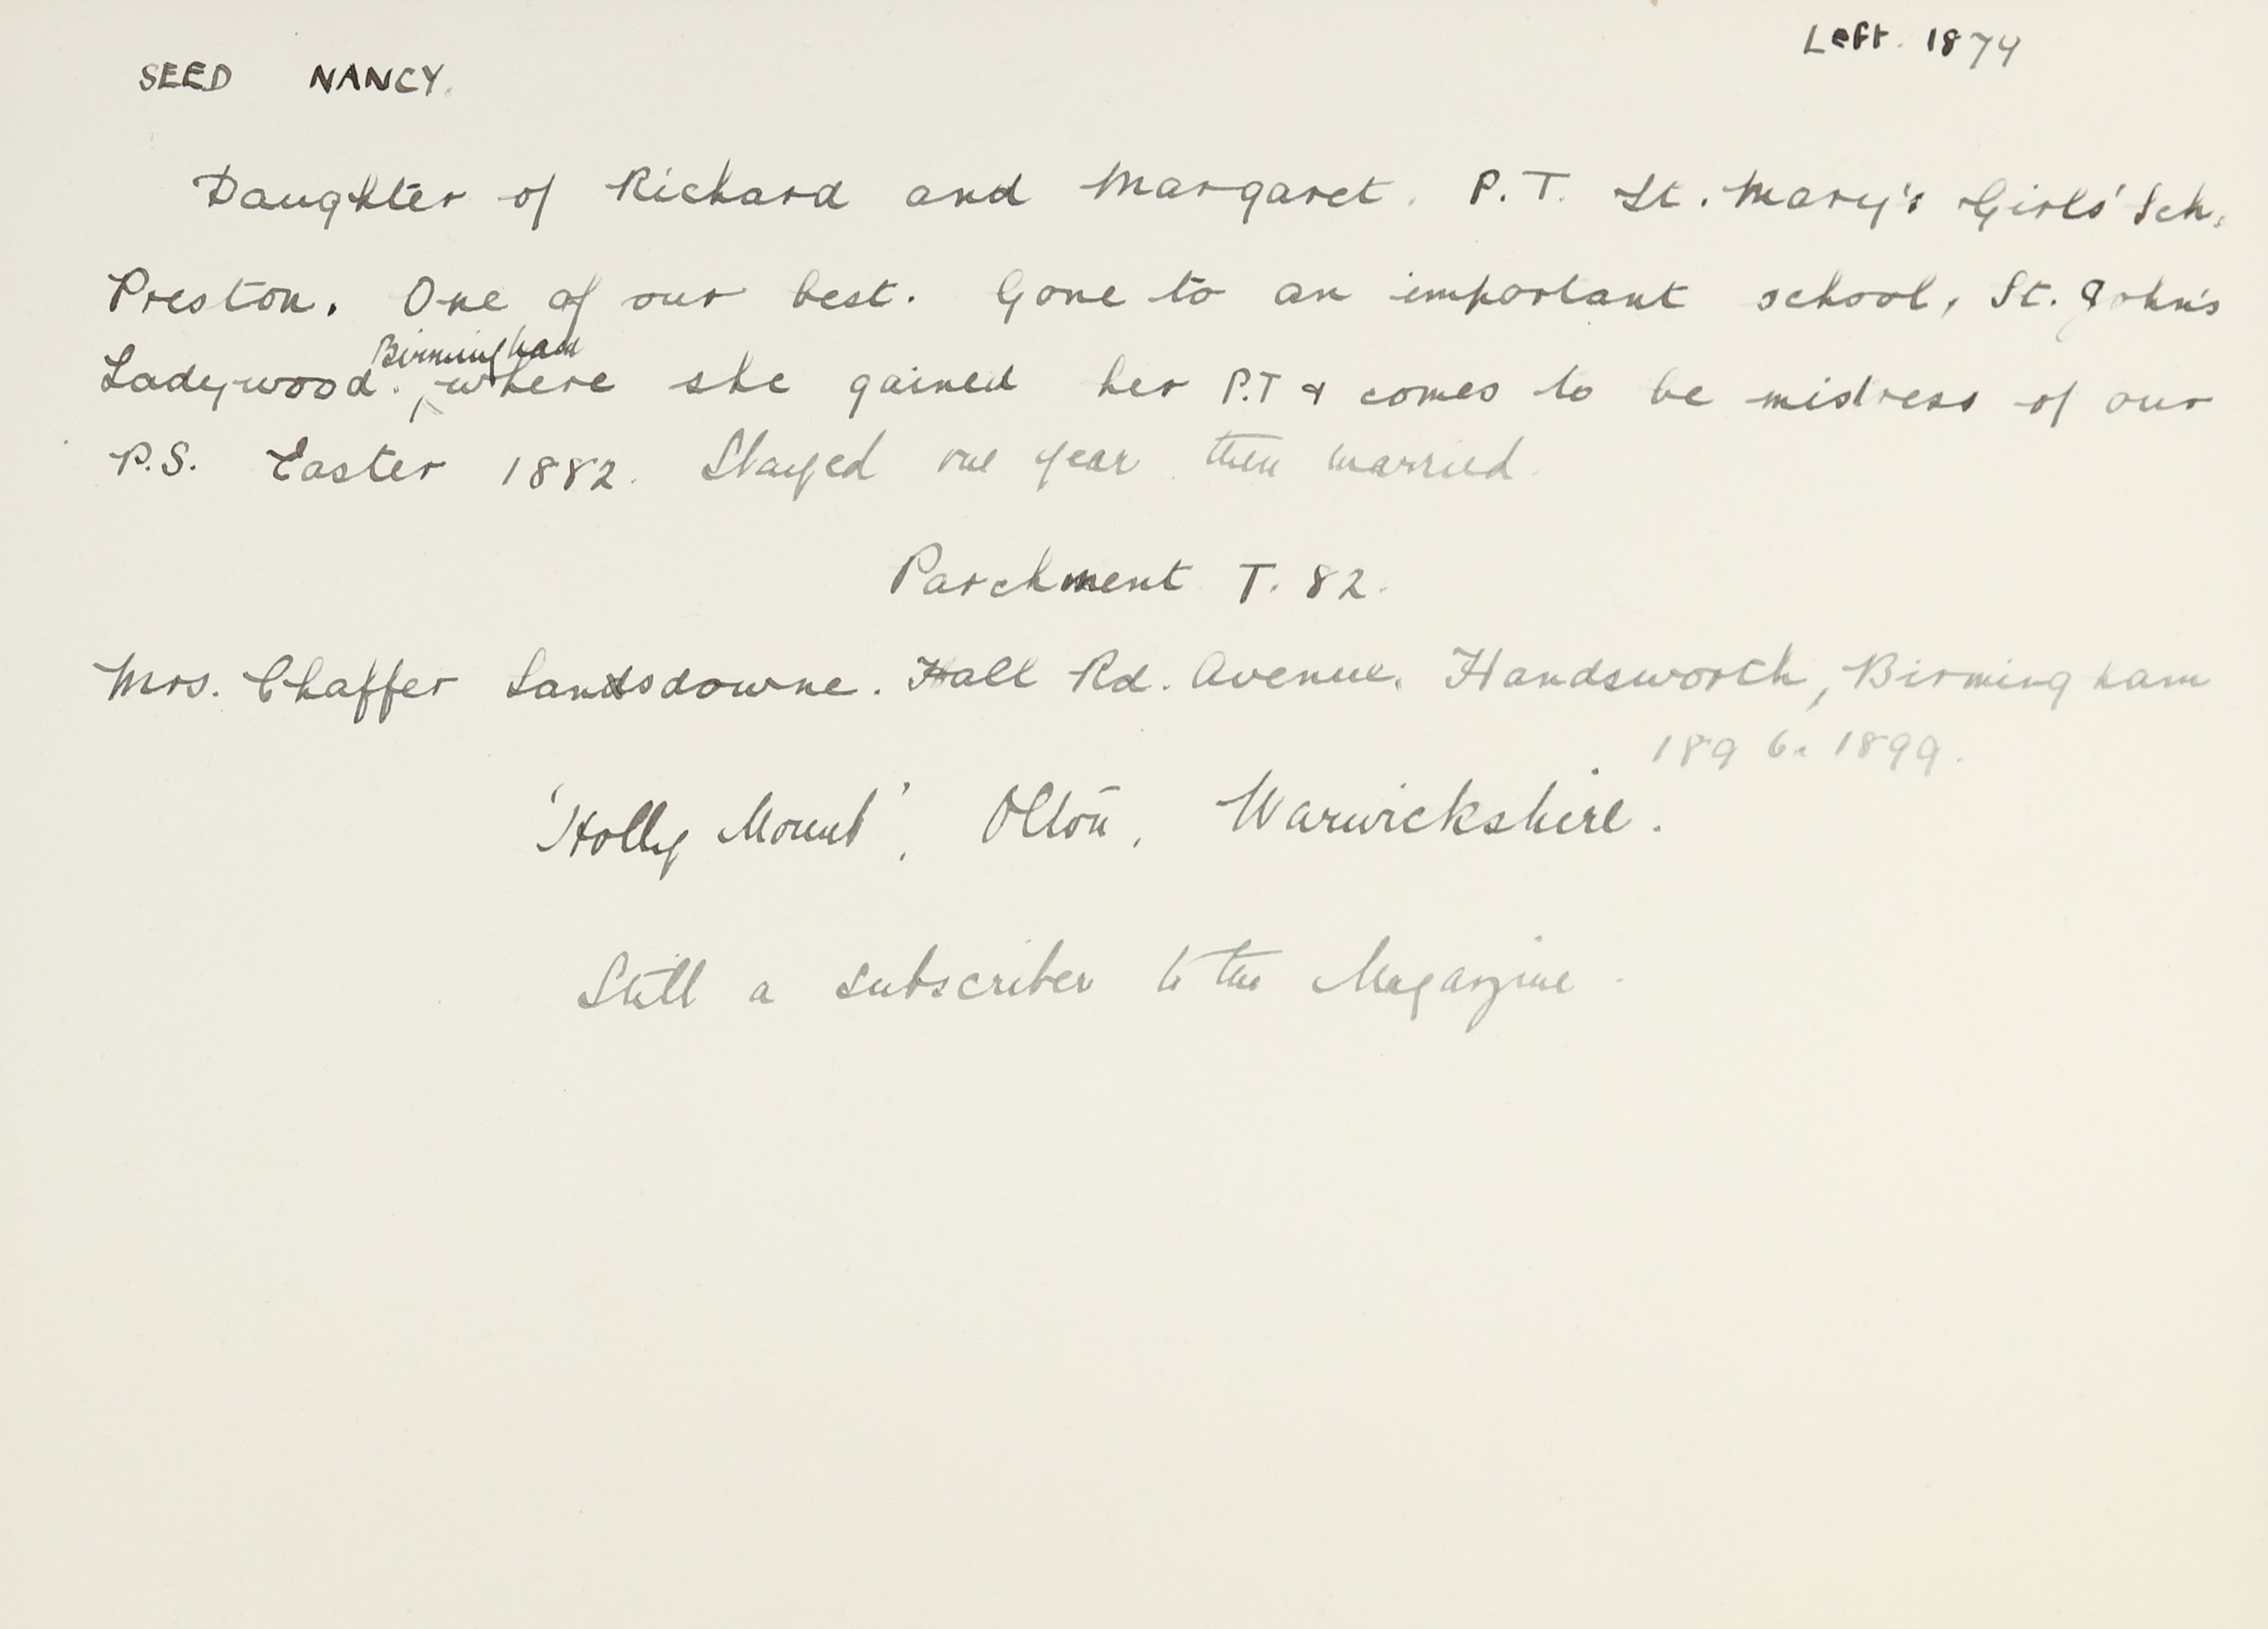 Left. 1874
SEED NANCY.
Daughter of Richard and Margaret. P.T. St. Mary's Girls' Sch.
Preston. One of our best. Gone to an important school, St. John's
Birmingham
Ladywood. where she gained her P.T & comes to be mistress of our
P.S. Easter 1882. Stayed one year then married.
Parchment T. 82.
Mrs. Chaffer Landsdowne. Hall Rd. Avenue. Handsworth, Birmingham
1896. 1899.
'Holly Mount', Olton, Warwickshire.
Still a subscriber to the Magazine.